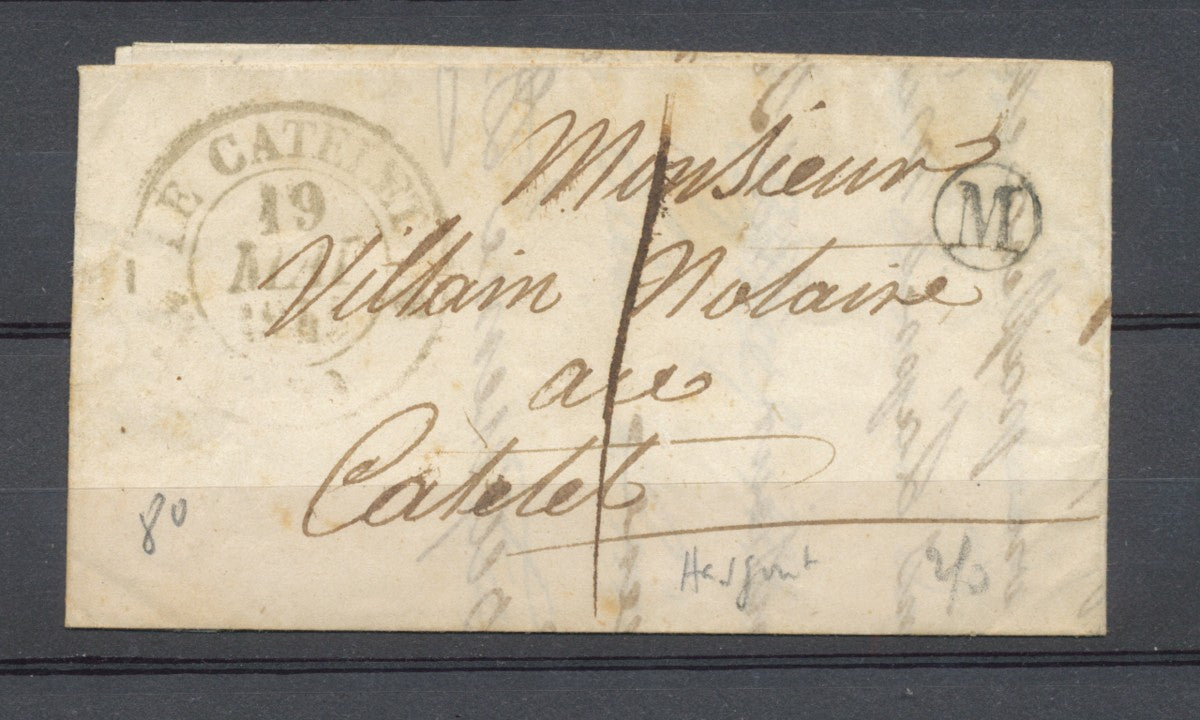 LE CATELET
19
M
Monsieur
Villain Notaire
au
Catelet
80
Hargicourt